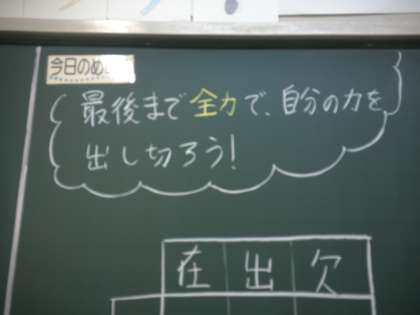 今日のめ
最後まで全力で、自分の力を
出し切ろう!
在 出 欠